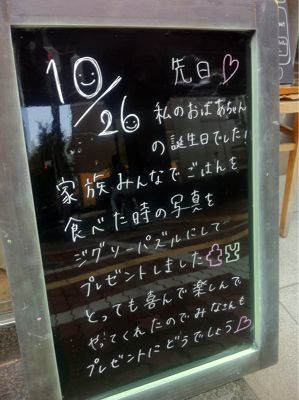 10/26
先日♡
私のおばあちゃん
の誕生日でした!
家族みんなでごはんを
食べた時の写真を
ジグソーパズルにして
プレゼントしました
とっても喜んで楽しんで
やってくれたのでみなさんも
プレゼントにどうでしょう♡